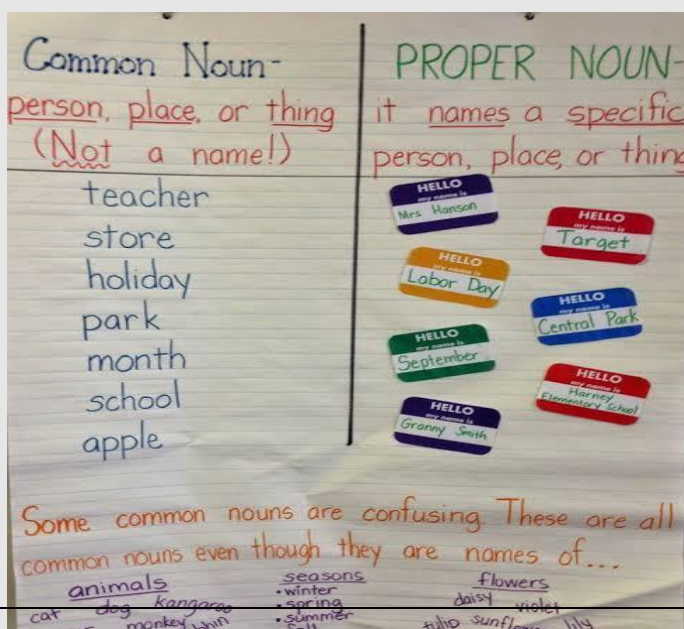 Common Noun-
person, place, or thing
(Not a name!)
PROPER NOUN-
it names a specific
person, place, or thing
teacher
store
holiday
park
month
school
apple
HELLO
my name is
Mrs Hanson
HELLO
my name is
Target
HELLO
my name is
Labor Day
HELLO
my name is
Central Park
HELLO
my name is
September
HELLO
my name is
Harney
Elementary School
HELLO
my name is
Granny Smith
Some common nouns are confusing. These are all
common nouns even though they are names of...
animals
cat dog kangaroo
monkey
seasons
• winter
• spring
• summer
• fall
flowers
daisy violet
tulip sunflower lily